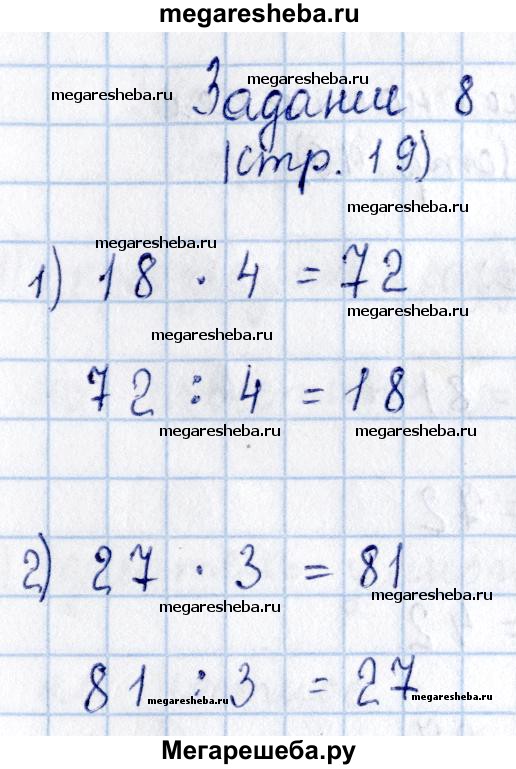 megaresheba.ru
megaresheba.ru
megaresheba.ru
Задание 8
(стр. 19)
megaresheba.ru
megaresheba.ru
1) 18 · 4 = 72
megaresheba.ru
megaresheba.ru
72 : 4 = 18
megaresheba.ru megaresheba.ru
2) 27 · 3 = 81
megaresheba.ru
megaresheba.ru
81 : 3 = 27
megaresheba.ru megaresheba.ru
Мегарешеба.ру